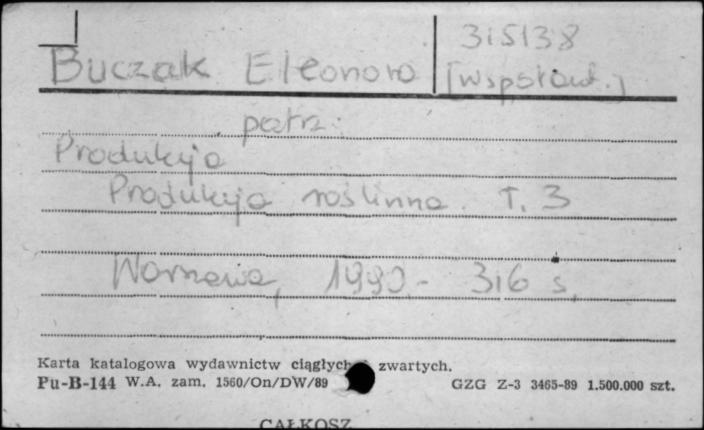 315138
Buczak Eleonora [współaut.]
patrz:
Produkcja
Produkcja roślinna. T. 3
Warszawa, 1990.- 316 s.
Karta katalogowa wydawnictw ciągłych zwartych.
Pu-B-144 W.A. zam. 1560/On/DW/89 GZG Z-3 3465-89 1.500.000 szt.
CAŁKOSZ